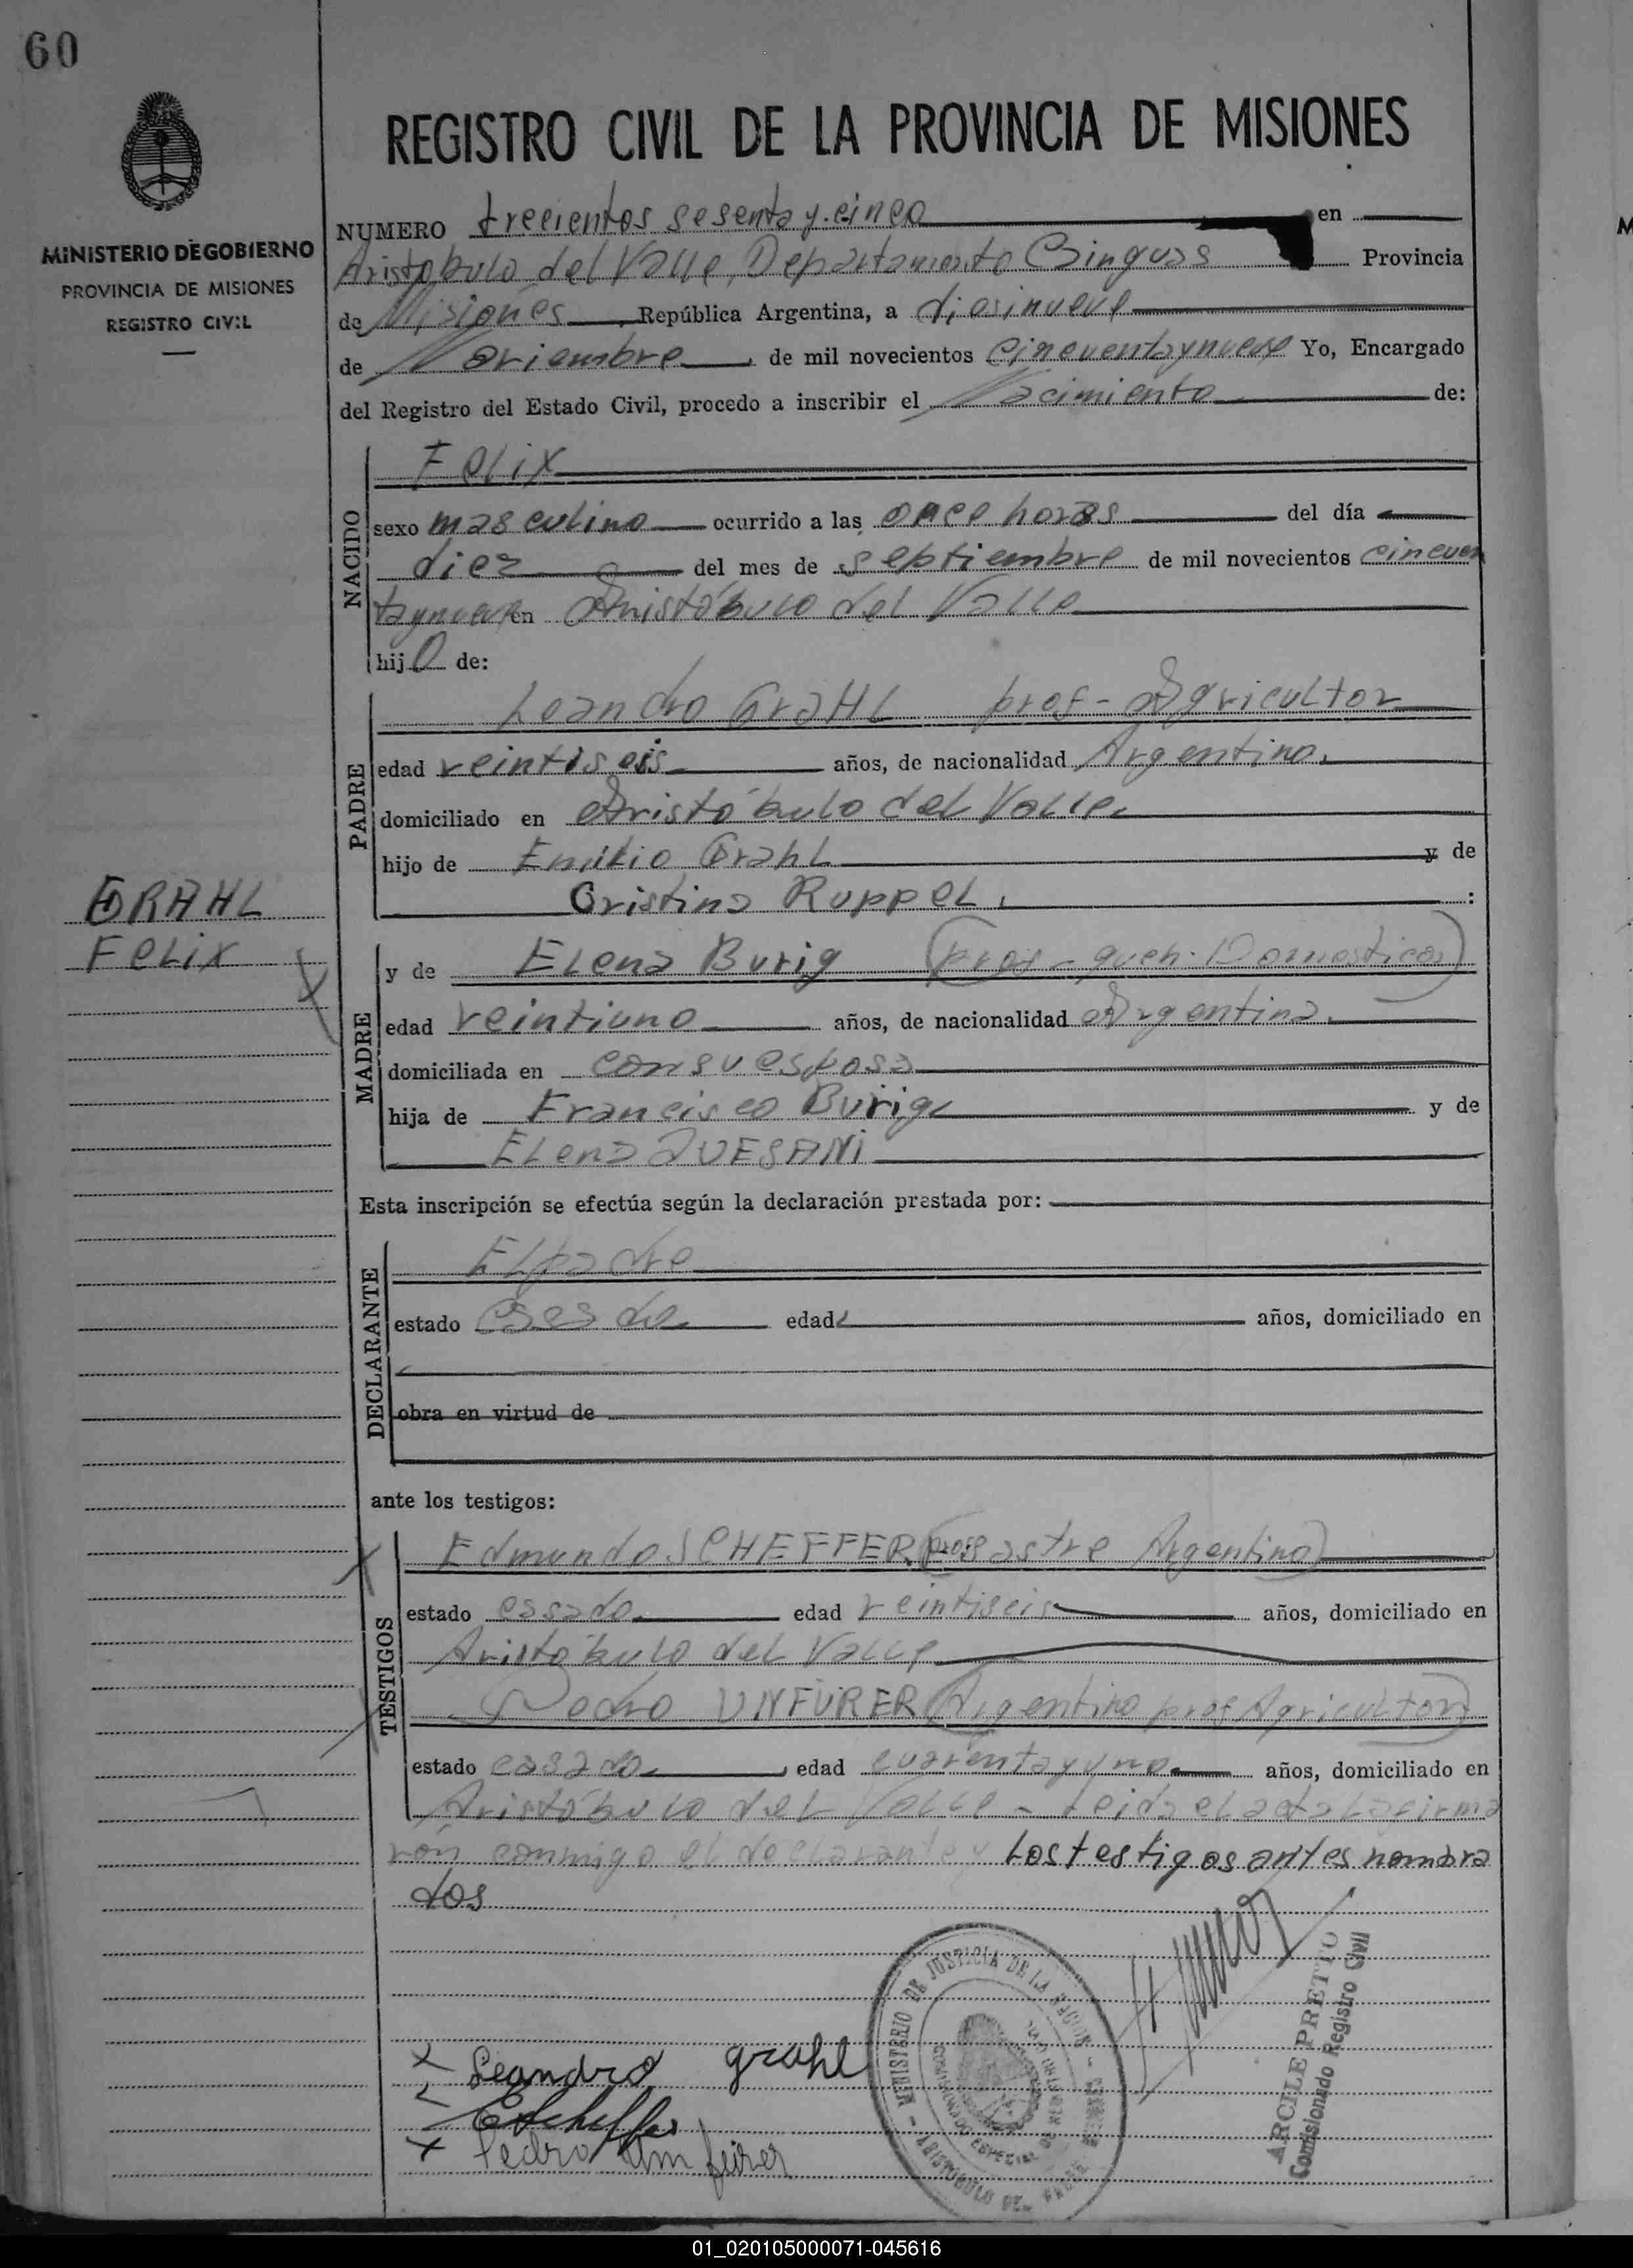 60
MINISTERIO DE GOBIERNO
PROVINCIA DE MISIONES
REGISTRO CIVIL
REGISTRO CIVIL DE LA PROVINCIA DE MISIONES
NUMERO trecientos sesenta y cinco en
Aristobulo del Valle, Departamento Cainguas Provincia
de Misiones, República Argentina, a diesinueve
de Noviembre de mil novecientos cincuentaynueve Yo, Encargado
del Registro del Estado Civil, procedo a inscribir el Nacimiento de:
NACIDO
Felix
sexo masculino ocurrido a las once horas del día
diez del mes de septiembre de mil novecientos cincuen
taynueve en Aristóbulo del Valle
hijo de:
PADRE
Leandro GraHL prof - Agricultor
edad veintiseis años, de nacionalidad Argentino.
domiciliado en Aristóbulo del Valle.
hijo de Emilio Grahl y de
Cristina Ruppel. :
GRAHL
Felix
MADRE
y de Elena Burig (prof - queh. Domesticos)
edad veintiuno años, de nacionalidad Argentina.
domiciliada en con su esposo
hija de Francisco Burig y de
Elena
Esta inscripción se efectúa según la declaración prestada por:
DECLARANTE
El padre
estado casado edad años, domiciliado en
obra en virtud de
ante los testigos:
TESTIGOS
Edmundo SCHEFFER (prof sastre Argentino)
estado casado edad veintiseis años, domiciliado en
Aristóbulo del Valle
Pedro UNFURER (Argentino prof Agricultor)
estado casado edad cuarentayuno años, domiciliado en
Aristóbulo del Valle - Leida el acta la firma
rón conmigo el declarante y los testigos antes nombra
dos
MINISTERIO DE JUSTICIA DE LA NACION - MISIONES - ARISTOBULO DEL VALLE
ARCILE PRETTO
Comisionado Registro Civil
Leandro grahl
EScheffer
Pedro
01_020105000071-045616